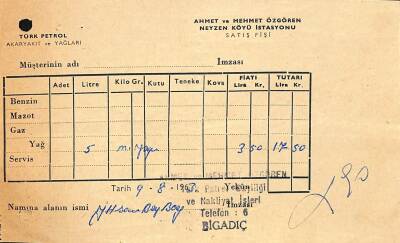 TÜRK PETROL
AKARYAKIT ve YAĞLARI
AHMET ve MEHMET ÖZGÖREN
NEYZEN KÖYÜ İSTASYONU
SATIŞ FİŞİ
Müşterinin adı İmzası
Adet Litre Kilo Gr. Kutu Teneke Kova FİATI Lira Kr. TUTARI Lira Kr.
Benzin
Mazot
Gaz
Yağ 5 3 50 17 50
Servis
AHMET ve MEHMET ÖZGÖREN
Tarih 9-8-1963 Yekün
Türk Petrol Bayiliği
ve Nakliyat İşleri
Namına alanın ismi İmzası
Telefon : 6
BİGADİÇ